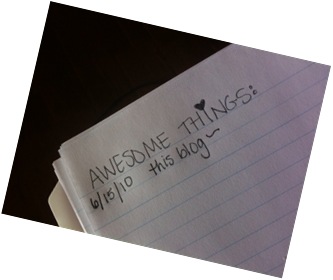 AWESOME THINGS:
6/15/10 this blog~